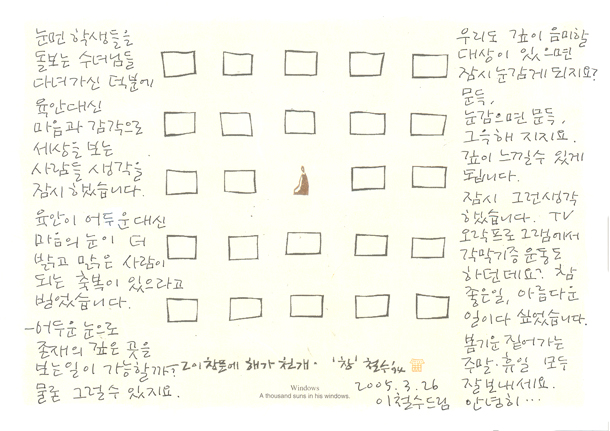 눈먼 학생들을
돌보는 수녀님들
다녀가신 덕분에
육안대신
마음과 감각으로
세상을 보는
사람들 생각을
잠시 했습니다.
육안이 어두운 대신
마음의 눈이 더
밝고 맑은 사람이
되는 축복이 있으라고
빌었습니다.
-어두운 눈으로
존재의 깊은 곳을
보는일이 가능할까?
물론 그럴수 있지요.
우리도 깊이 음미할
대상이 있으면
잠시 눈감게 되지요?
문득,
눈감으면 문득,
그윽해 지지요.
깊이 느낄수 있게
됩니다.
잠시 그런생각
했습니다. TV
오락프로그램에서
각막기증운동도
하던데요? 참
좋은일, 아름다운
일이다 싶었습니다.
봄기운 짙어가는
주말·휴일 모두
잘보내세요.
안녕히…
그이 창문에 해가 천개· '창' 철수
Windows
A thousand suns in his windows.
2005.3.26
이철수드림